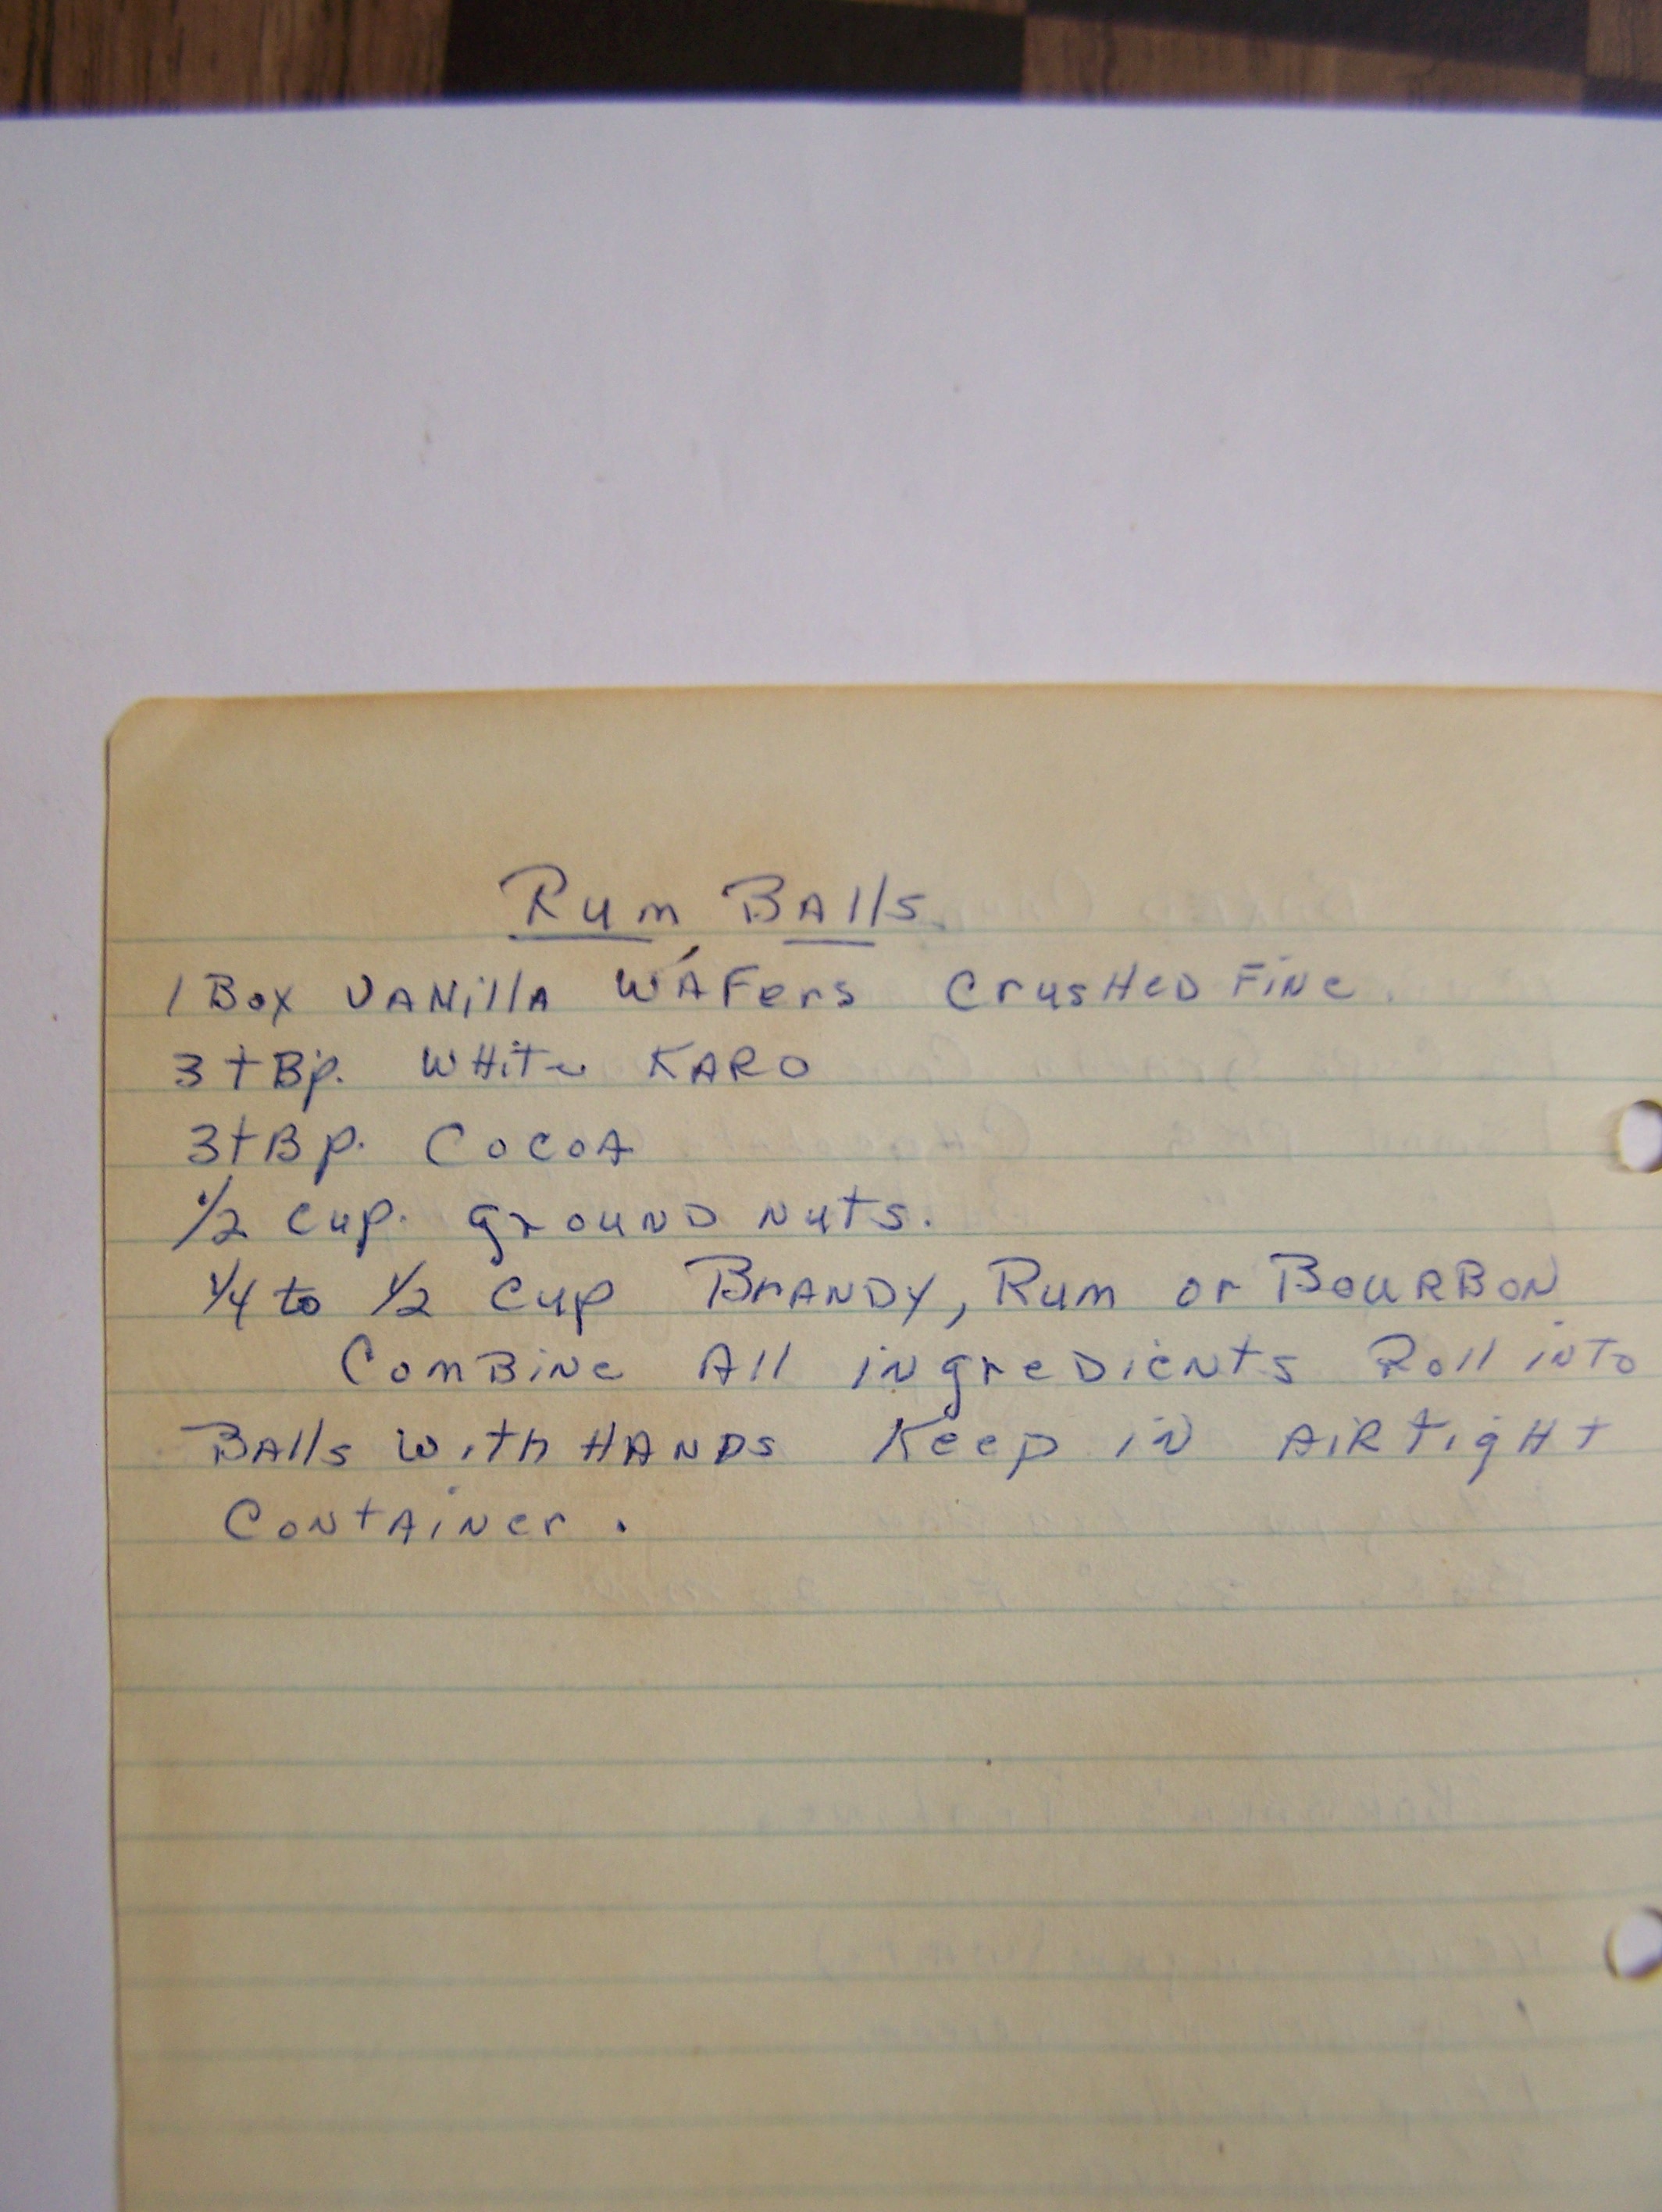 Rum BAlls
1 Box VANillA WAFers CrusHeD FiNe.
3 tBp. WHite KARO
3 tBp. COCOA
1/2 cup. grouND Nuts.
1/4 to 1/2 cup BrANDY, Rum or BouRBoN
ComBiNe All iNgreDieNts Roll iNto
BAlls with HANDs Keep iN AiR tigHt
CoNtAiNer.